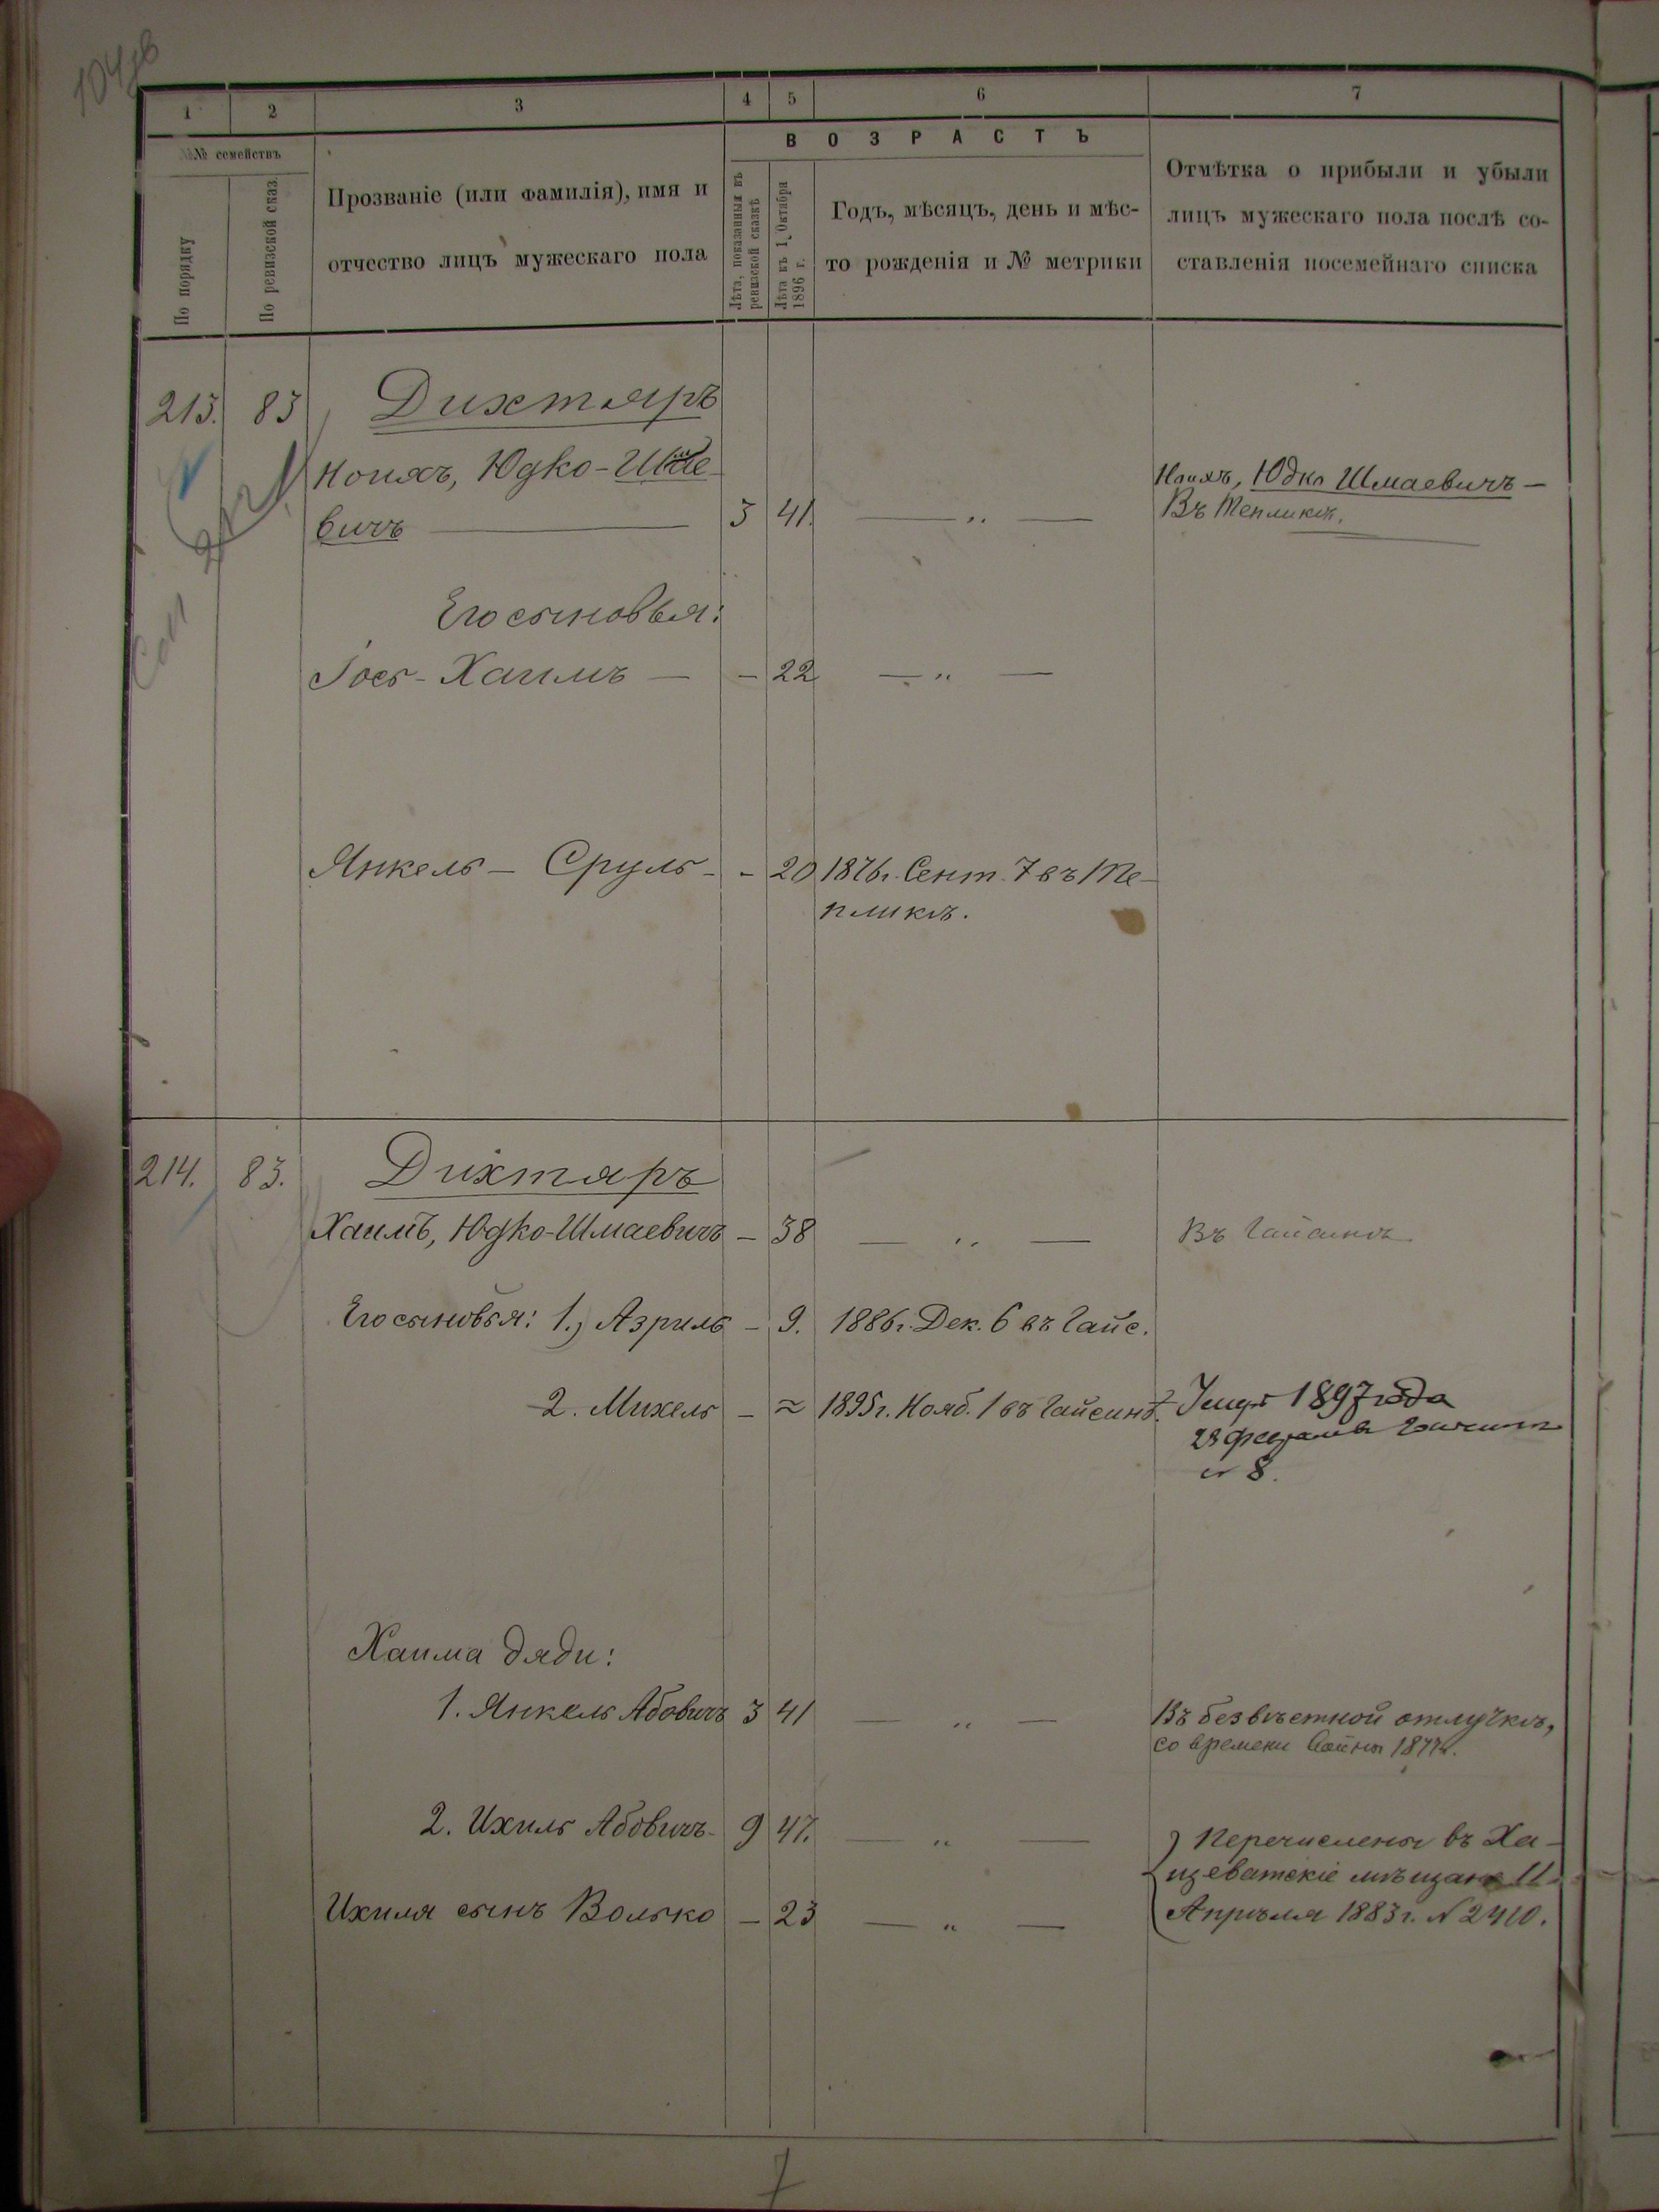 104об
1 2 3 4 5 6 7
№№ семействъ
По порядку
По ревизской сказ.
Прозваніе (или фамилія), имя и
отчество лицъ мужескаго пола
ВОЗРАСТЪ
Лѣта, показанныя въ
ревизской сказкѣ
Лѣта къ 1 Октября
1896 г.
Годъ, мѣсяцъ, день и мѣс-
то рожденія и № метрики
Отмѣтка о прибыли и убыли
лицъ мужескаго пола послѣ со-
ставленія посемейнаго списка
213. 83 Дихтяръ
Ноихъ, Юдко-Шмае
вичъ — 3 41. — „ —
Ноихъ, Юдко Шмаевичъ —
Въ Тепликѣ.
Его сыновья:
Іось - Хаимъ — - 22 — „ —
Янкель - Сруль - - 20 1876г. Сент. 7 въ Те-
пликѣ.
214. 83. Дихтяръ
Хаимъ, Юдко-Шмаевичъ - 38 — „ — Въ Гайсинѣ
Его сыновья: 1.) Азриль - 9. 1886г. Дек. 6 въ Гайс.
2. Михель - ≈ 1895г. Нояб. 1 въ Гайсинѣ. Умеръ 1897 года
23 февраля Гайсинъ
№ 8.
Хаима дяди:
1. Янкель Абовичъ 3 41 — „ — Въ безвѣстной отлучкѣ,
со времени войны 1877г.
2. Ихиль Абовичъ - 9 47. — „ — Перечислены въ Ха-
щеватскіе мѣщане 11
Ихиля сынъ Волько - 23 — „ — Апрѣля 1883г. № 2410.
7